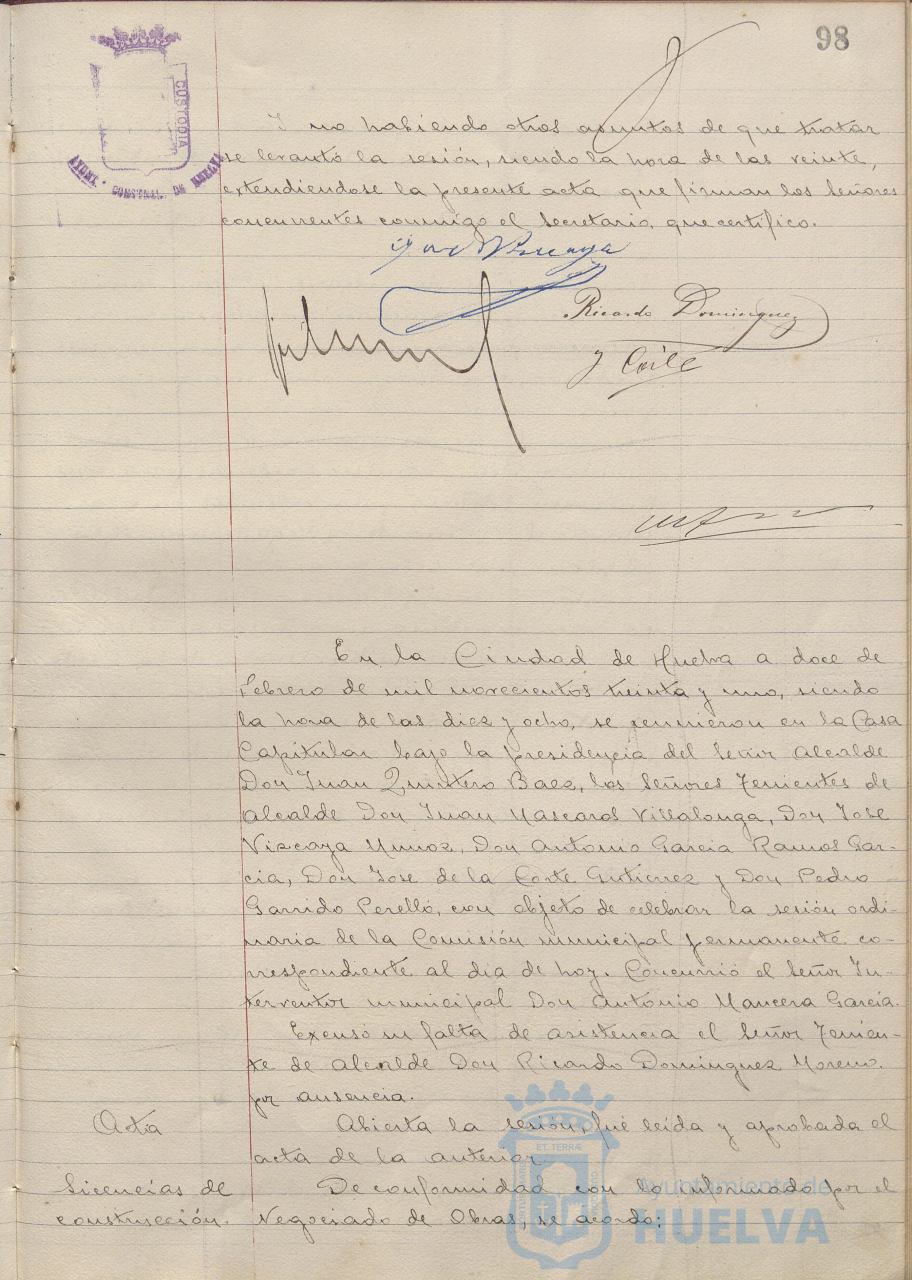 98
CUSTODIA
AYUNT. CONSTNAL. DE HUELVA
Y no habiendo otros asuntos de que tratar
se levantó la sesión, siendo la hora de las veinte,
extendiendose la presente acta que firman los Señores
concurrentes conmigo el secretario, que certifico.
Ricardo Dominguez
En la Ciudad de Huelva a doce de
Febrero de mil novecientos treinta y uno, siendo
la hora de las diez y ocho, se reunieron en la Casa
Capitular bajo la presidencia del Señor Alcalde
Don Juan Quintero Baez, los Señores Tenientes de
Alcalde Don Juan Mascaros Villalonga, Don Jose
Vizcaya Muñoz, Don Antonio Garcia Ramos Gar-
cia, Don Jose de la Corte Gutierrez y Don Pedro
Garrido Perelló, con objeto de celebrar la sesión ordi-
naria de la Comisión municipal permanente co-
rrespondiente al dia de hoy. Concurrió el Señor In-
terventor municipal Don Antonio Mancera Garcia.
Excusó su falta de asistencia el Señor Tenien-
te de Alcalde Don Ricardo Dominguez Moreno.
por ausencia.
Acta
Abierta la sesión, fué leida y aprobada el
acta de la anterior.
Licencias de
construcción.
De conformidad con lo informado por el
Negociado de Obras, se acordó:
ET TERRÆ
Ayuntamiento de
HUELVA